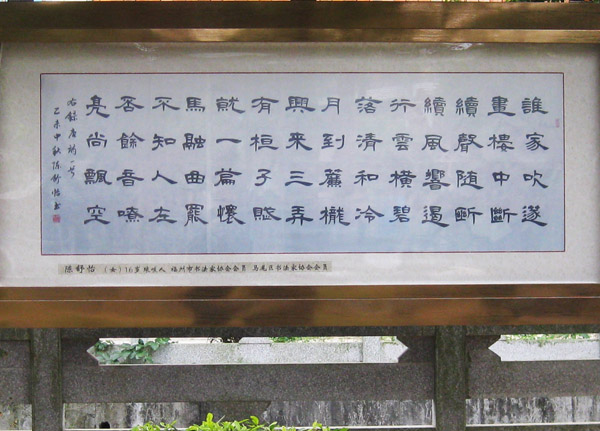 誰家吹遂
畫樓中斷
續聲随斷
續風響遏
行雲橫碧
落清和冷
月到簾櫳
興来三弄
有桓子賦
就一篇懷
馬融曲罷
不知人在
否餘音嘹
亮尚飄空
右錄唐詩一首
乙未中秋陈舒怡书
陈舒怡 (女)16岁 琅岐人 福州市书法家协会会员 马尾区书法家协会会员